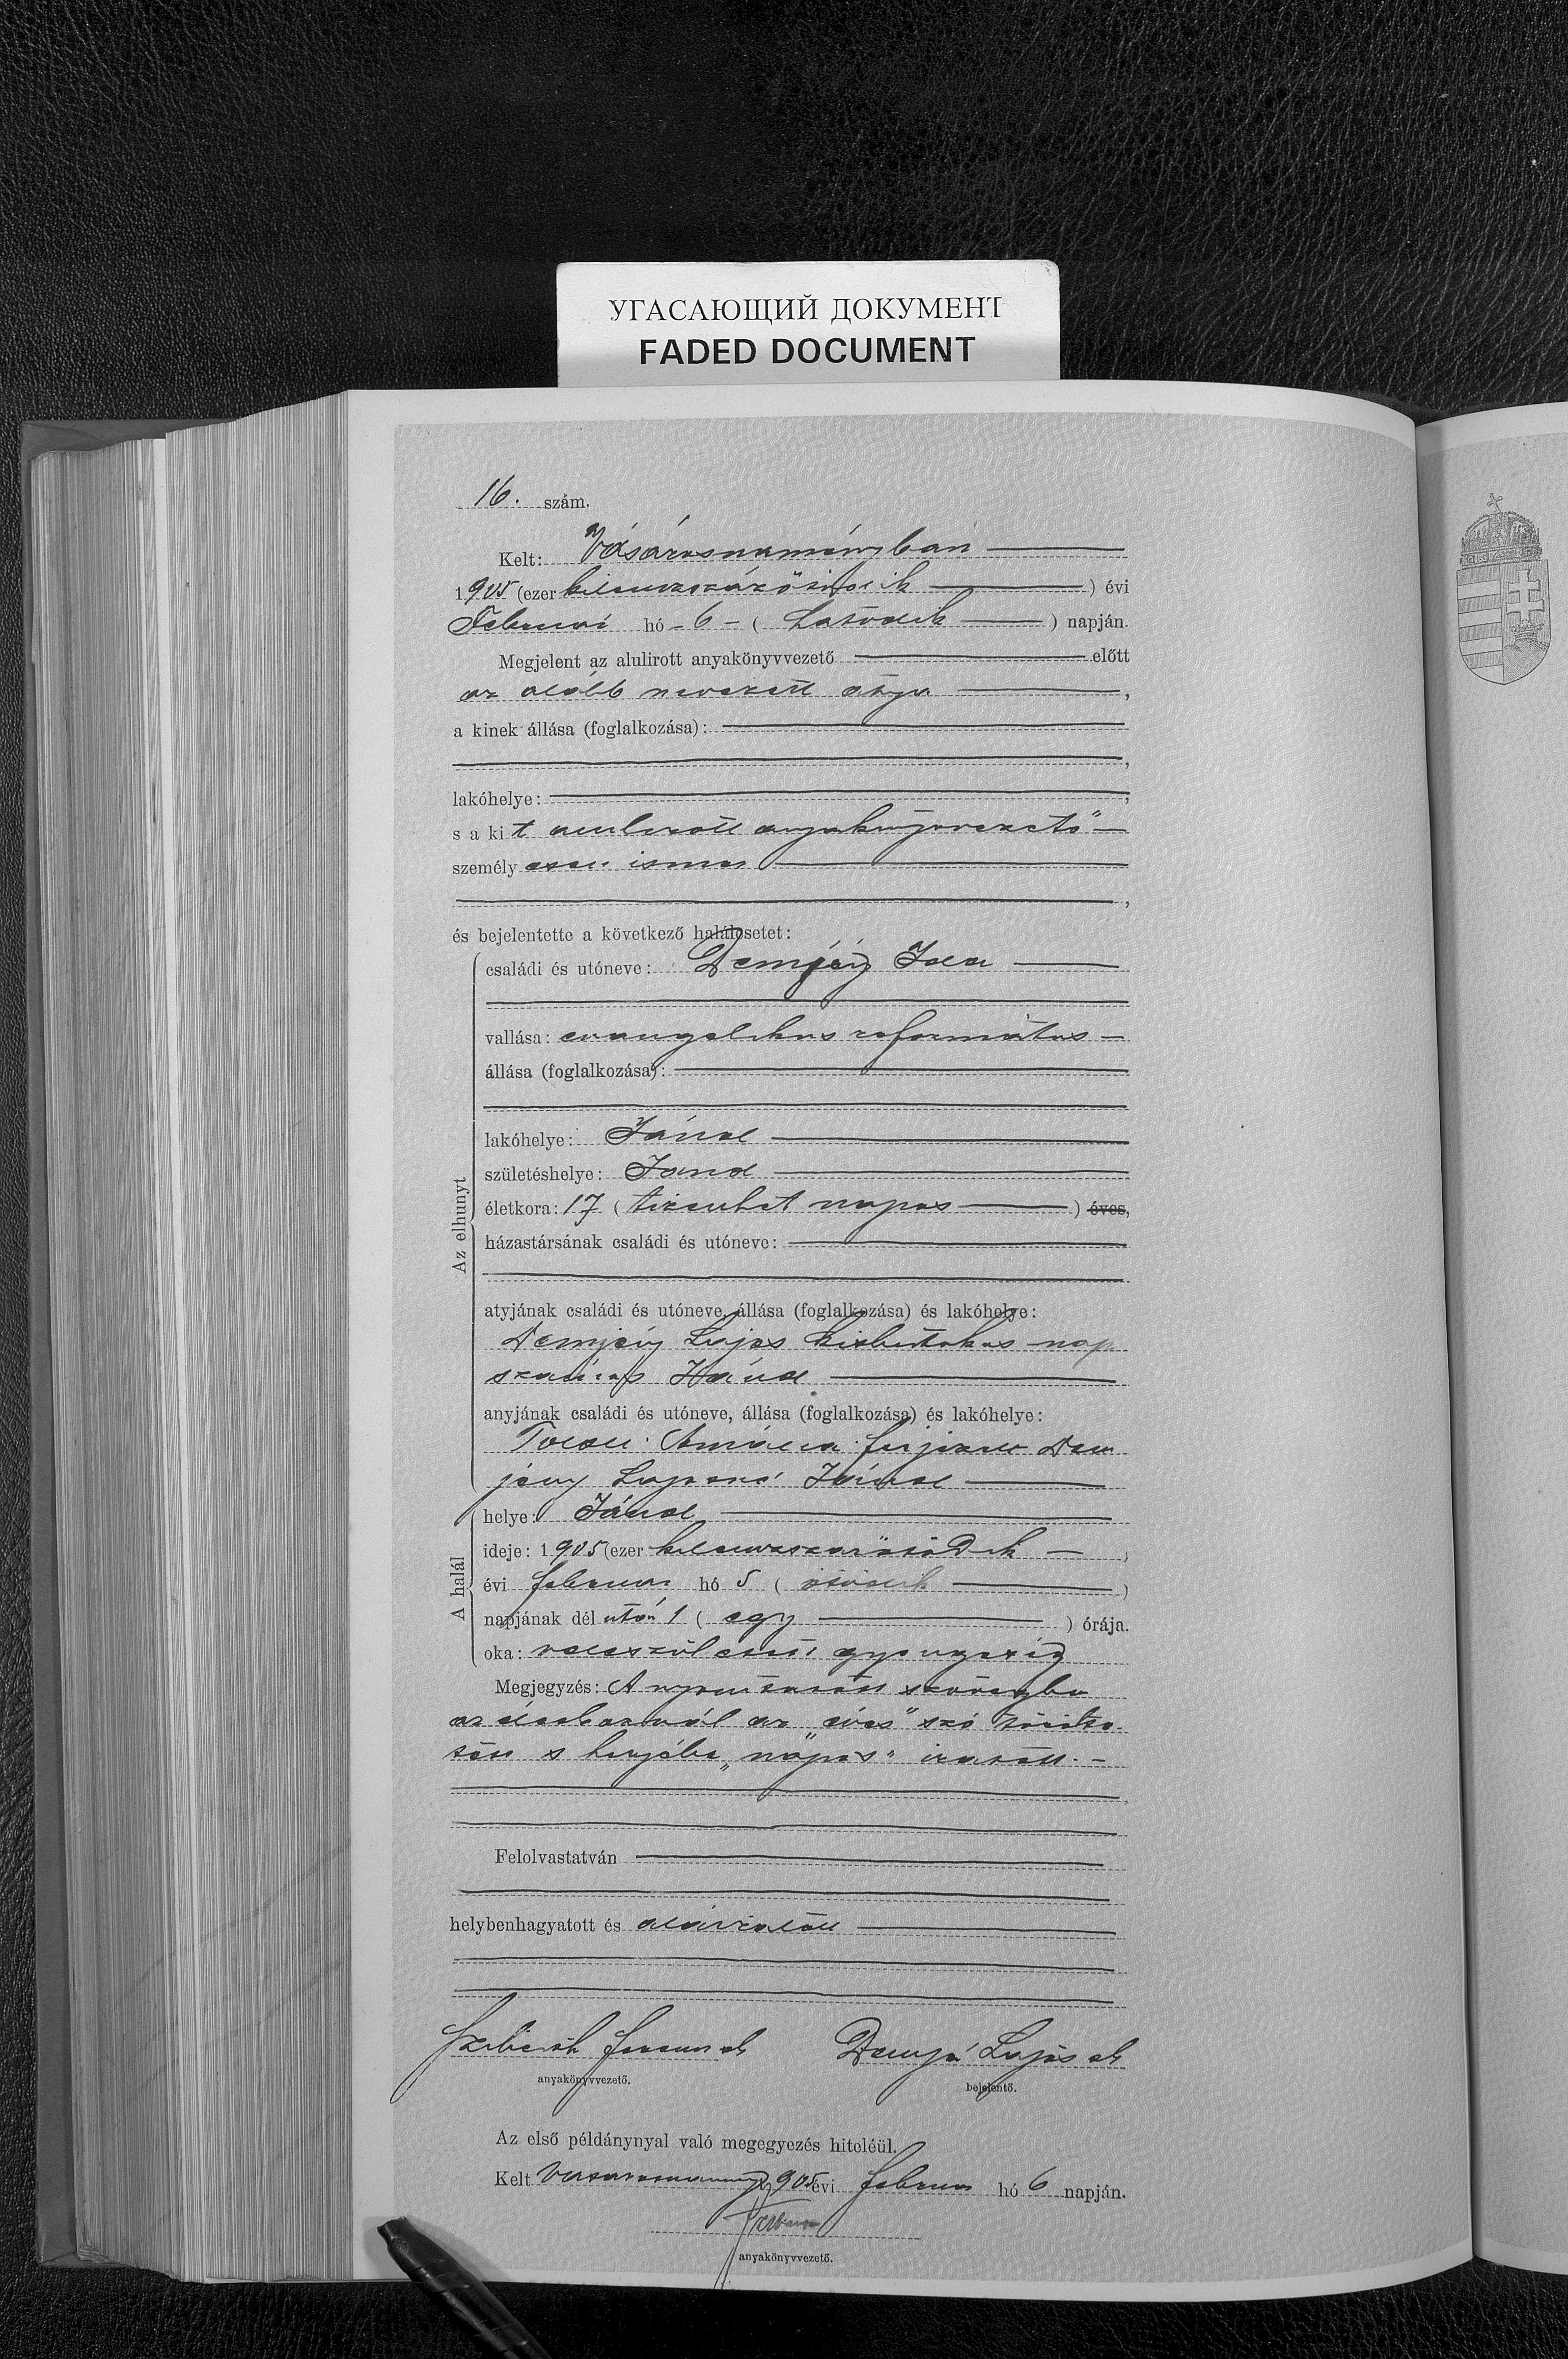 УГАСАЮЩИЙ ДОКУМЕНТ
FADED DOCUMENT
16. szám.
Kelt: Vásárosnaményban
1905 (ezer kilenczszázötödik) évi
Februári hó 6 (hatodik) napján.
Megjelent az alulirott anyakönyvvezető előtt
az alább nevezett atyja,
a kinek állása (foglalkozása):
lakóhelye:
s a kit alulirott anyakönyvvezető
személyesen ismer
és bejelentette a következő halálesetet:
Az elhunyt
családi és utóneve: Demjény Ida
vallása: evangelikus református
állása (foglalkozása):
lakóhelye: Jánd
születéshelye: Jánd
életkora: 17 (tizenhet napos) éves,
házastársának családi és utóneve:
atyjának családi és utóneve, állása (foglalkozása) és lakóhelye:
Demjény Lajos kisbirtokos nap
számos Jánd
anyjának családi és utóneve, állása (foglalkozása) és lakóhelye:
Amália férjezett Dem
jény Lajosné Jánd
A halál
helye: Jánd
ideje: 1905 (ezer kilenczszázötödik
évi február hó 5 (ötödik)
napjának dél után 1 (egy) órája.
oka: veleszületett gyengeség
Megjegyzés: A nyomtatott szövegbe
az életkornál az „éves" szó törölte
tett s helyébe „napos" iratott.
Felolvastatván
helybenhagyatott és aláiratott
Ferencz sk Demjé Lajos sk
anyakönyvvezető. bejelentő.
Az első példánynyal való megegyezés hiteléül.
Kelt Vásárosnamény 1905 évi február hó 6 napján.
anyakönyvvezető.